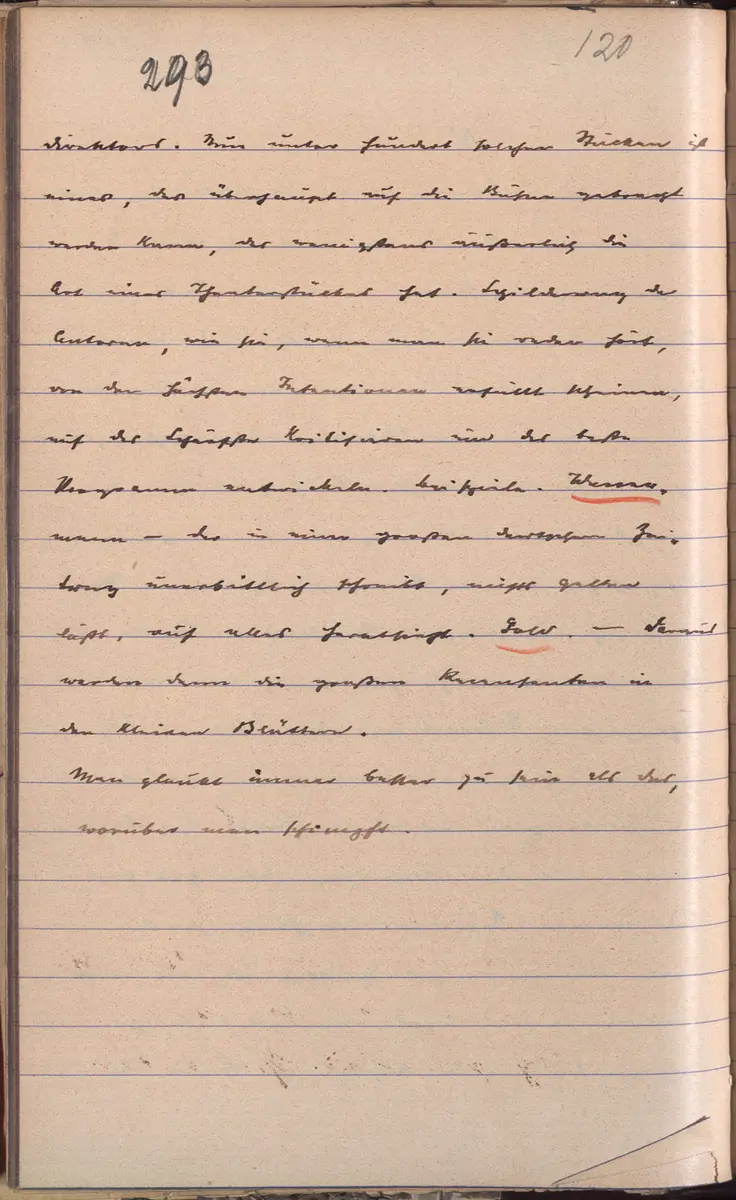 293
120
direktors. Nur unter hundert solchen Stücken ist
eines, das überhaupt auf die Bühne gebracht
werden kann, das wenigstens äußerlich die
Art eines Theaterstückes hat. Schilderung der
Autoren, wie sie, wenn man sie reden hört,
von den höchsten Intentionen erfüllt scheinen,
auf das Schärfste kritisieren und das beste
Programm entwickeln. Beispiele.
mann – der in einer großen deutschen Zei-
tung unerbittlich schreibt, nichts gelten
läßt, auf alles herabsieht. Gold. – Daraus
werden dann die großen Rezensenten in
den kleinen Blättern.
Man glaubt immer besser zu sein als das,
worüber man schimpft.